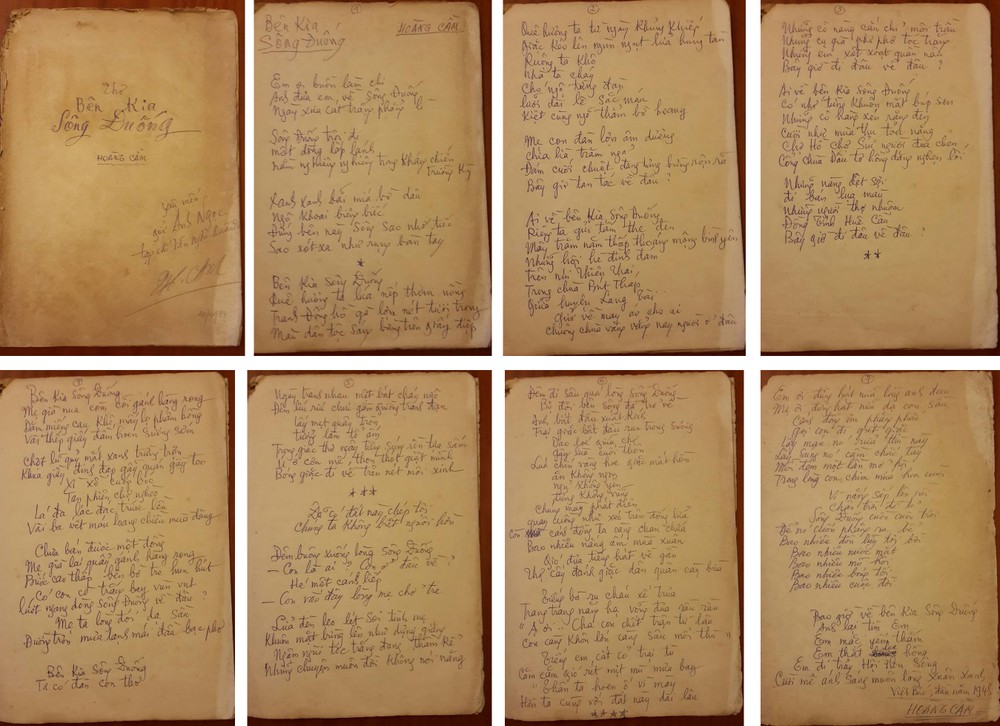 Thơ
Bên Kia
Sông Đuống
HOÀNG CẦM
gửi Anh Ngọc
①
Bên Kia
Sông Đuống
HOÀNG CẦM
Em ơi buồn làm chi
Anh đưa em về Sông Đuống
Ngày xưa cát trắng phẳng lì
Sông Đuống trôi đi
một dòng lấp lánh
nằm nghiêng nghiêng trong kháng chiến
trường kỳ
Xanh xanh bãi mía bờ dâu
Ngô khoai biêng biếc
Đứng bên này Sông sao nhớ tiếc
Sao xót xa như rụng bàn tay
*
Bên Kia Sông Đuống
Quê hương ta lúa nếp thơm nồng
Tranh Đông hồ gà lợn nét tươi trong
Màu dân tộc sáng bừng trên giấy điệp
②
Quê hương ta từ ngày Khủng Khiếp
Giặc Kéo lên ngùn ngụt lửa hung tàn
Ruộng ta Khô
Nhà ta cháy
Chó ngộ từng đàn
Lưỡi dài lê sắc máu
Kiệt cùng ngõ thẳm bờ hoang
Mẹ con đàn lợn âm dương
chia lìa trăm ngả
Đám cưới chuột đang tưng bừng rộn rã
Bây giờ tan tác về đâu?
Ai về bên Kia Sông Đuống
Cho ta gửi tấm the đen
Mấy trăm năm thấp thoáng mộng bình yên
Những hội hè đình đám
Trên núi Thiên Thai,
Trong chùa Bút Tháp
Giữa huyện Lang Tài...
Gửi về may áo cho ai
chuông chùa văng vẳng nay người ở đâu
Những cô nàng cắn chỉ môi trầu
Những cụ già phơ phơ tóc trắng
Những em sột soạt quần nâu
Bây giờ đi đâu về đâu?
Ai về bên Kia Sông Đuống
Có nhớ từng khuôn mặt búp sen
Những cô hàng xén răng đen
Cười như mùa thu tỏa nắng
Chợ Hồ chợ Sủi người đua chen
Bãi Tràm chỉ
Những nàng dệt sợi
đi bán lụa màu
Những người thợ nhuộm
Đồng Tỉnh Huê Cầu
Bây giờ đi đâu về đâu?
* *
Bên Kia Sông Đuống
Mẹ già nua còm cõi gánh hàng rong
Dăm miếng cau khô, mấy lọ phẩm hồng
Vài thếp giấy đầm hoen sương sớm
Chợt lũ quỷ mắt xanh trừng trợn
Khua giày đinh đạp gẫy quán gầy teo
Xì xồ cướp bóc
Tan phiên chợ nghèo
Lá đa lác đác trước lều
Vài ba vết máu loang chiều mùa đông
Chưa bán được một đồng
Mẹ già lại quẩy gánh hàng rong
Bước cao thấp bên bờ tre hun hút
Có con cò trắng bay vùn vụt
Lướt ngang dòng Sông Đuống về đâu?
Mẹ ta lòng đói dạ sầu
Đường trơn mưa lạnh mái đầu bạc phơ
Bên Kia Sông Đuống
Ta có đàn con thơ
⑤
Ngày tranh nhau một bát cháo ngô
Đêm líu ríu chui gầm giường tránh đạn
Lấy mẹt quây tròn
Tưởng làm tổ ấm
Trong giấc thơ ngây tiếng súng rền tựa sấm
Ú ớ cơn mê, thon thót giật mình
Bóng giặc đi về trên nét môi xinh
***
Đã có đất này chép tội
Chúng ta không biết nguôi hờn
Đêm buông xuống lòng Sông Đuống
- Con là ai? - Con ở đâu về?
Hé một cánh liếp
- Con vào đây lòng mẹ chở tre
Lửa đèn leo lét soi tình mẹ
Khuôn mặt bừng lên như dựng giăng
Ngậm ngùi tóc trắng đang thầm kể
Những chuyện muôn đời không nói năng
⑥
Đêm đi sâu quá lòng Sông Đuống
Bộ đội bên Sông đã trở về
Con bắt đầu xuất kích
Trại giặc bắt đầu run trong sương
Dao loé giữa chợ
Gậy lùa cuối thôn
Lúa chín vàng hoe giặc mất hồn
ăn không ngon
ngủ không yên
đứng không vững
Chúng mày phát điên
quay cuồng như xéo trên đống lửa
cánh đồng ta càng chan chứa
Bao nhiêu nắng ấm mùa xuân
Gió đưa tiếng hát về gần
Thợ cấy đánh giặc dân quân cày bừa
Tiếng bà ru cháu xế trưa
Trang trang nắng hạ võng đưa rầu rầu
"À ơi... Cha con chết trận từ lâu
Con càng khôn lớn càng sâu mối thù"
Tiếng em cắt cỏ trại tù
Căm căm gió rét mịt mù mưa bay
"Thân ta hoen ố vì mày
Hồn ta cùng với đất này dài lâu"
****
⑦
Em ơi đừng hát nữa lòng anh đau
Mẹ ơi đừng hát nữa dạ con sầu
Cánh đồng im phăng phắc
Để con đi giết giặc
Lấy máu nó rửa thù này
Lấy súng nó cầm chắc tay
Mỗi đêm một lần mở hội
Trong lòng con chim múa hoa cười
Vì nắng sắp lên rồi
Chân trời đã tỏ
Sông Đuống cuồn cuộn trôi
Để nó cuốn phăng ra bể
Bao nhiêu đồn bốt tơi bời
Bao nhiêu nước mắt
Bao nhiêu mồ hôi
Bao nhiêu bóng tối
Bao nhiêu cuộc đời
Bao giờ về bên Kia Sông Đuống
Anh lại tìm Em
Em mặc yếm thắm
Em thắt lụa hồng
Em đi trẩy Hội non Sông
Cười mê ánh sáng muôn lòng Xuân Xanh
Việt Bắc, đầu năm 1948
HOÀNG CẦM